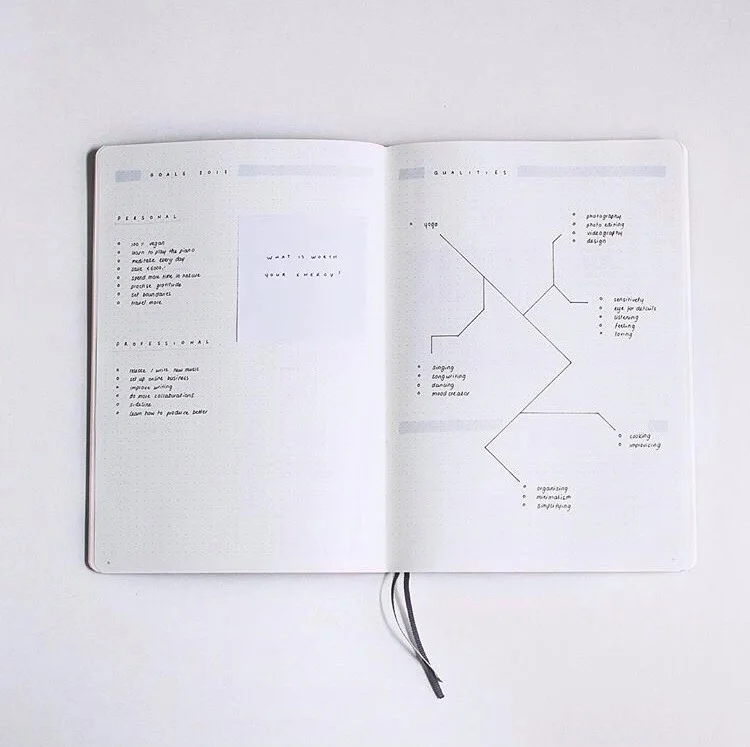 GOALS 2018
PERSONAL
100% vegan
learn to play the piano
meditate every day
save €5000!
spend more time in nature
practise gratitude
set boundaries
travel more
WHAT IS WORTH
YOUR ENERGY?
PROFESSIONAL
release / write new music
set up online business
improve writing
do more collaborations
sideline
learn how to produce better
QUALITIES
yoga
photography
photo editing
videography
design
sensitivity
eye for details
listening
feeling
loving
singing
songwriting
dancing
mood creator
cooking
improvising
organising
minimalism
simplifying